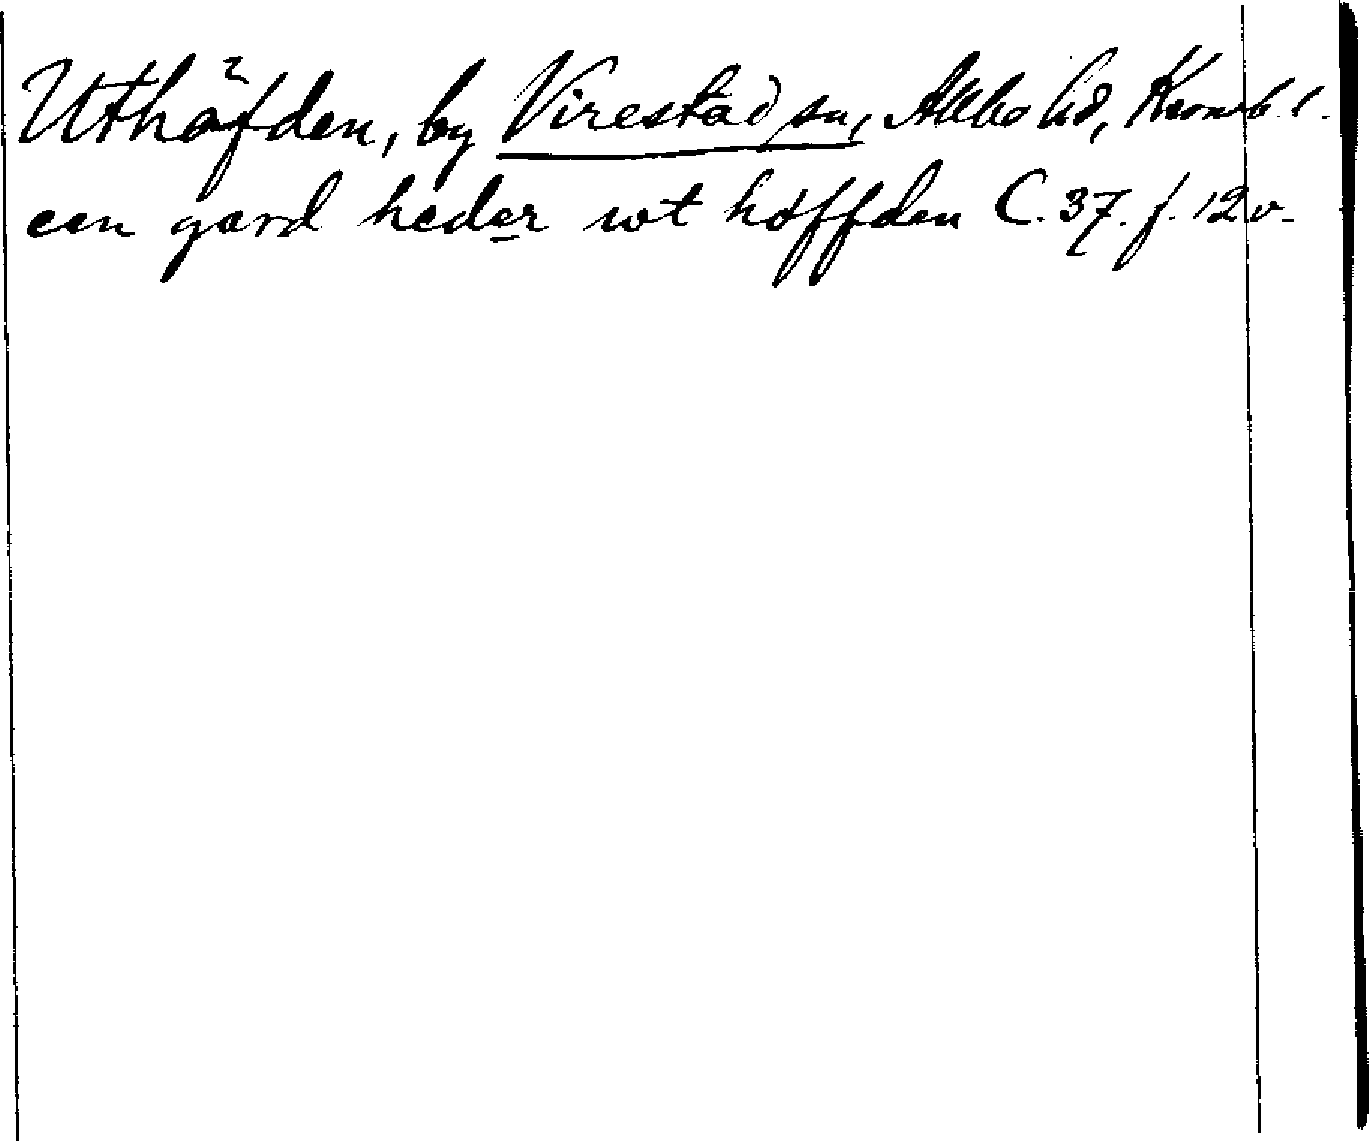 Uthöfden, by Virestad sn, Allbo hd, Kronob. l.
een gard heder wt höffden C. 37. f. 12 v.